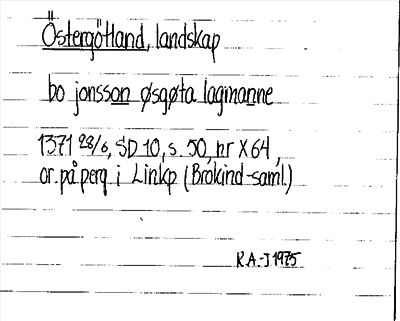 Östergötland, landskap
bo jonsson øsgøta lagmanne
1371 28/6, SD 10, s. 50, nr X 64,
or. på perg. i Linkp (Brokind-saml.)
R.A.-J 1975